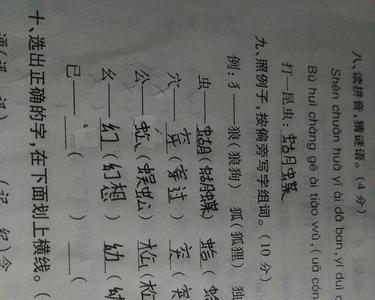 八、读拼音,猜谜语。(4分)
Shēn chuān huā yī ài dǎ ban, yí duì
Bú huì chàng gē ài tiào wǔ,
打一昆虫:蝴蝶
九、照例子,按偏旁写字组词。(10分)
例:犭——狼(狼狗) 狐(狐狸) 独
虫——蝴(蝴蝶) 蛤(蛤
穴——穿(穿过) 突(突
公——蚣(蜈蚣)
幺——幻(幻想) 幼(幼
已——___( ) ___(
十、选出正确的字,在下面划上横线。(